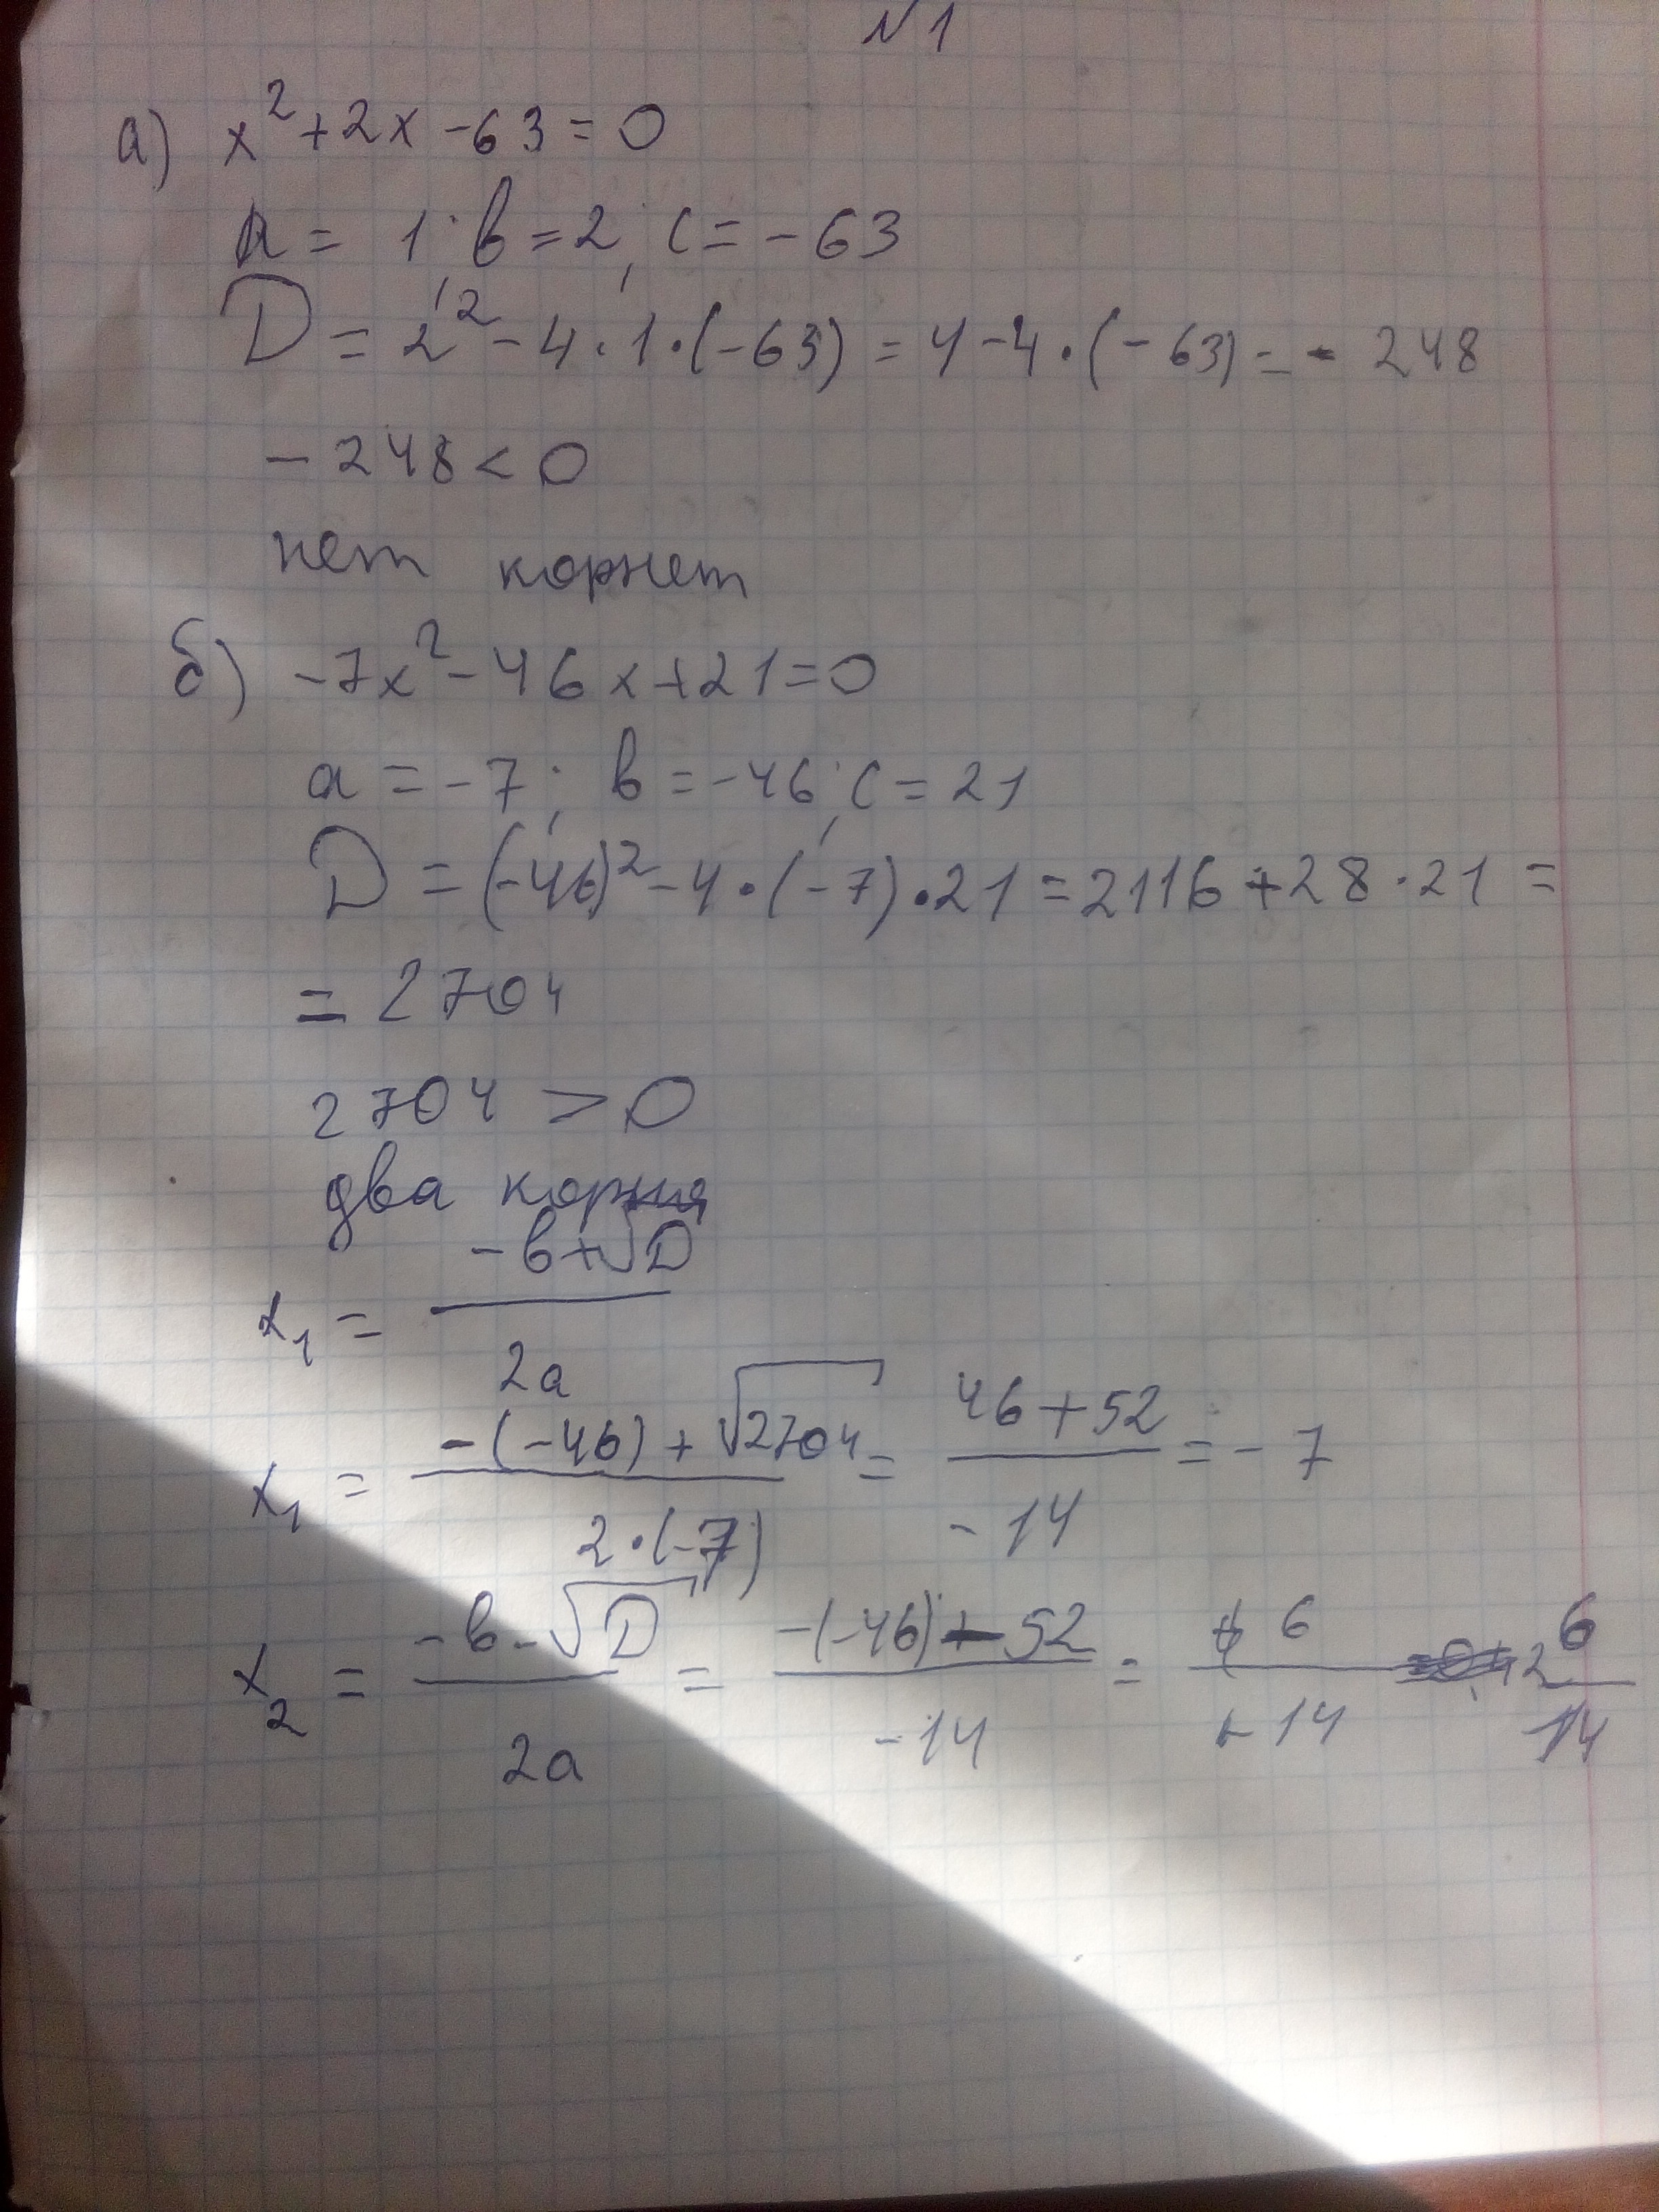 №1
а) x²+2x-63=0
a = 1; b=2; c=-63
D = 2²-4·1·(-63)=4-4·(-63)=-248
-248<0
нет корнет
б) -7x²-46x+21=0
a=-7; b=-46; c=21
D=(-46)²-4·(-7)·21=2116+28·21=
=2704
2704>0
два корня
x₁ = (-b+√D)/2a
x₁ = (-(-46)+√2704)/(2·(-7)) = (46+52)/-14 = -7
x₂ = (-b-√D)/2a = (-(-46)-52)/-14 = 6/14 6/14